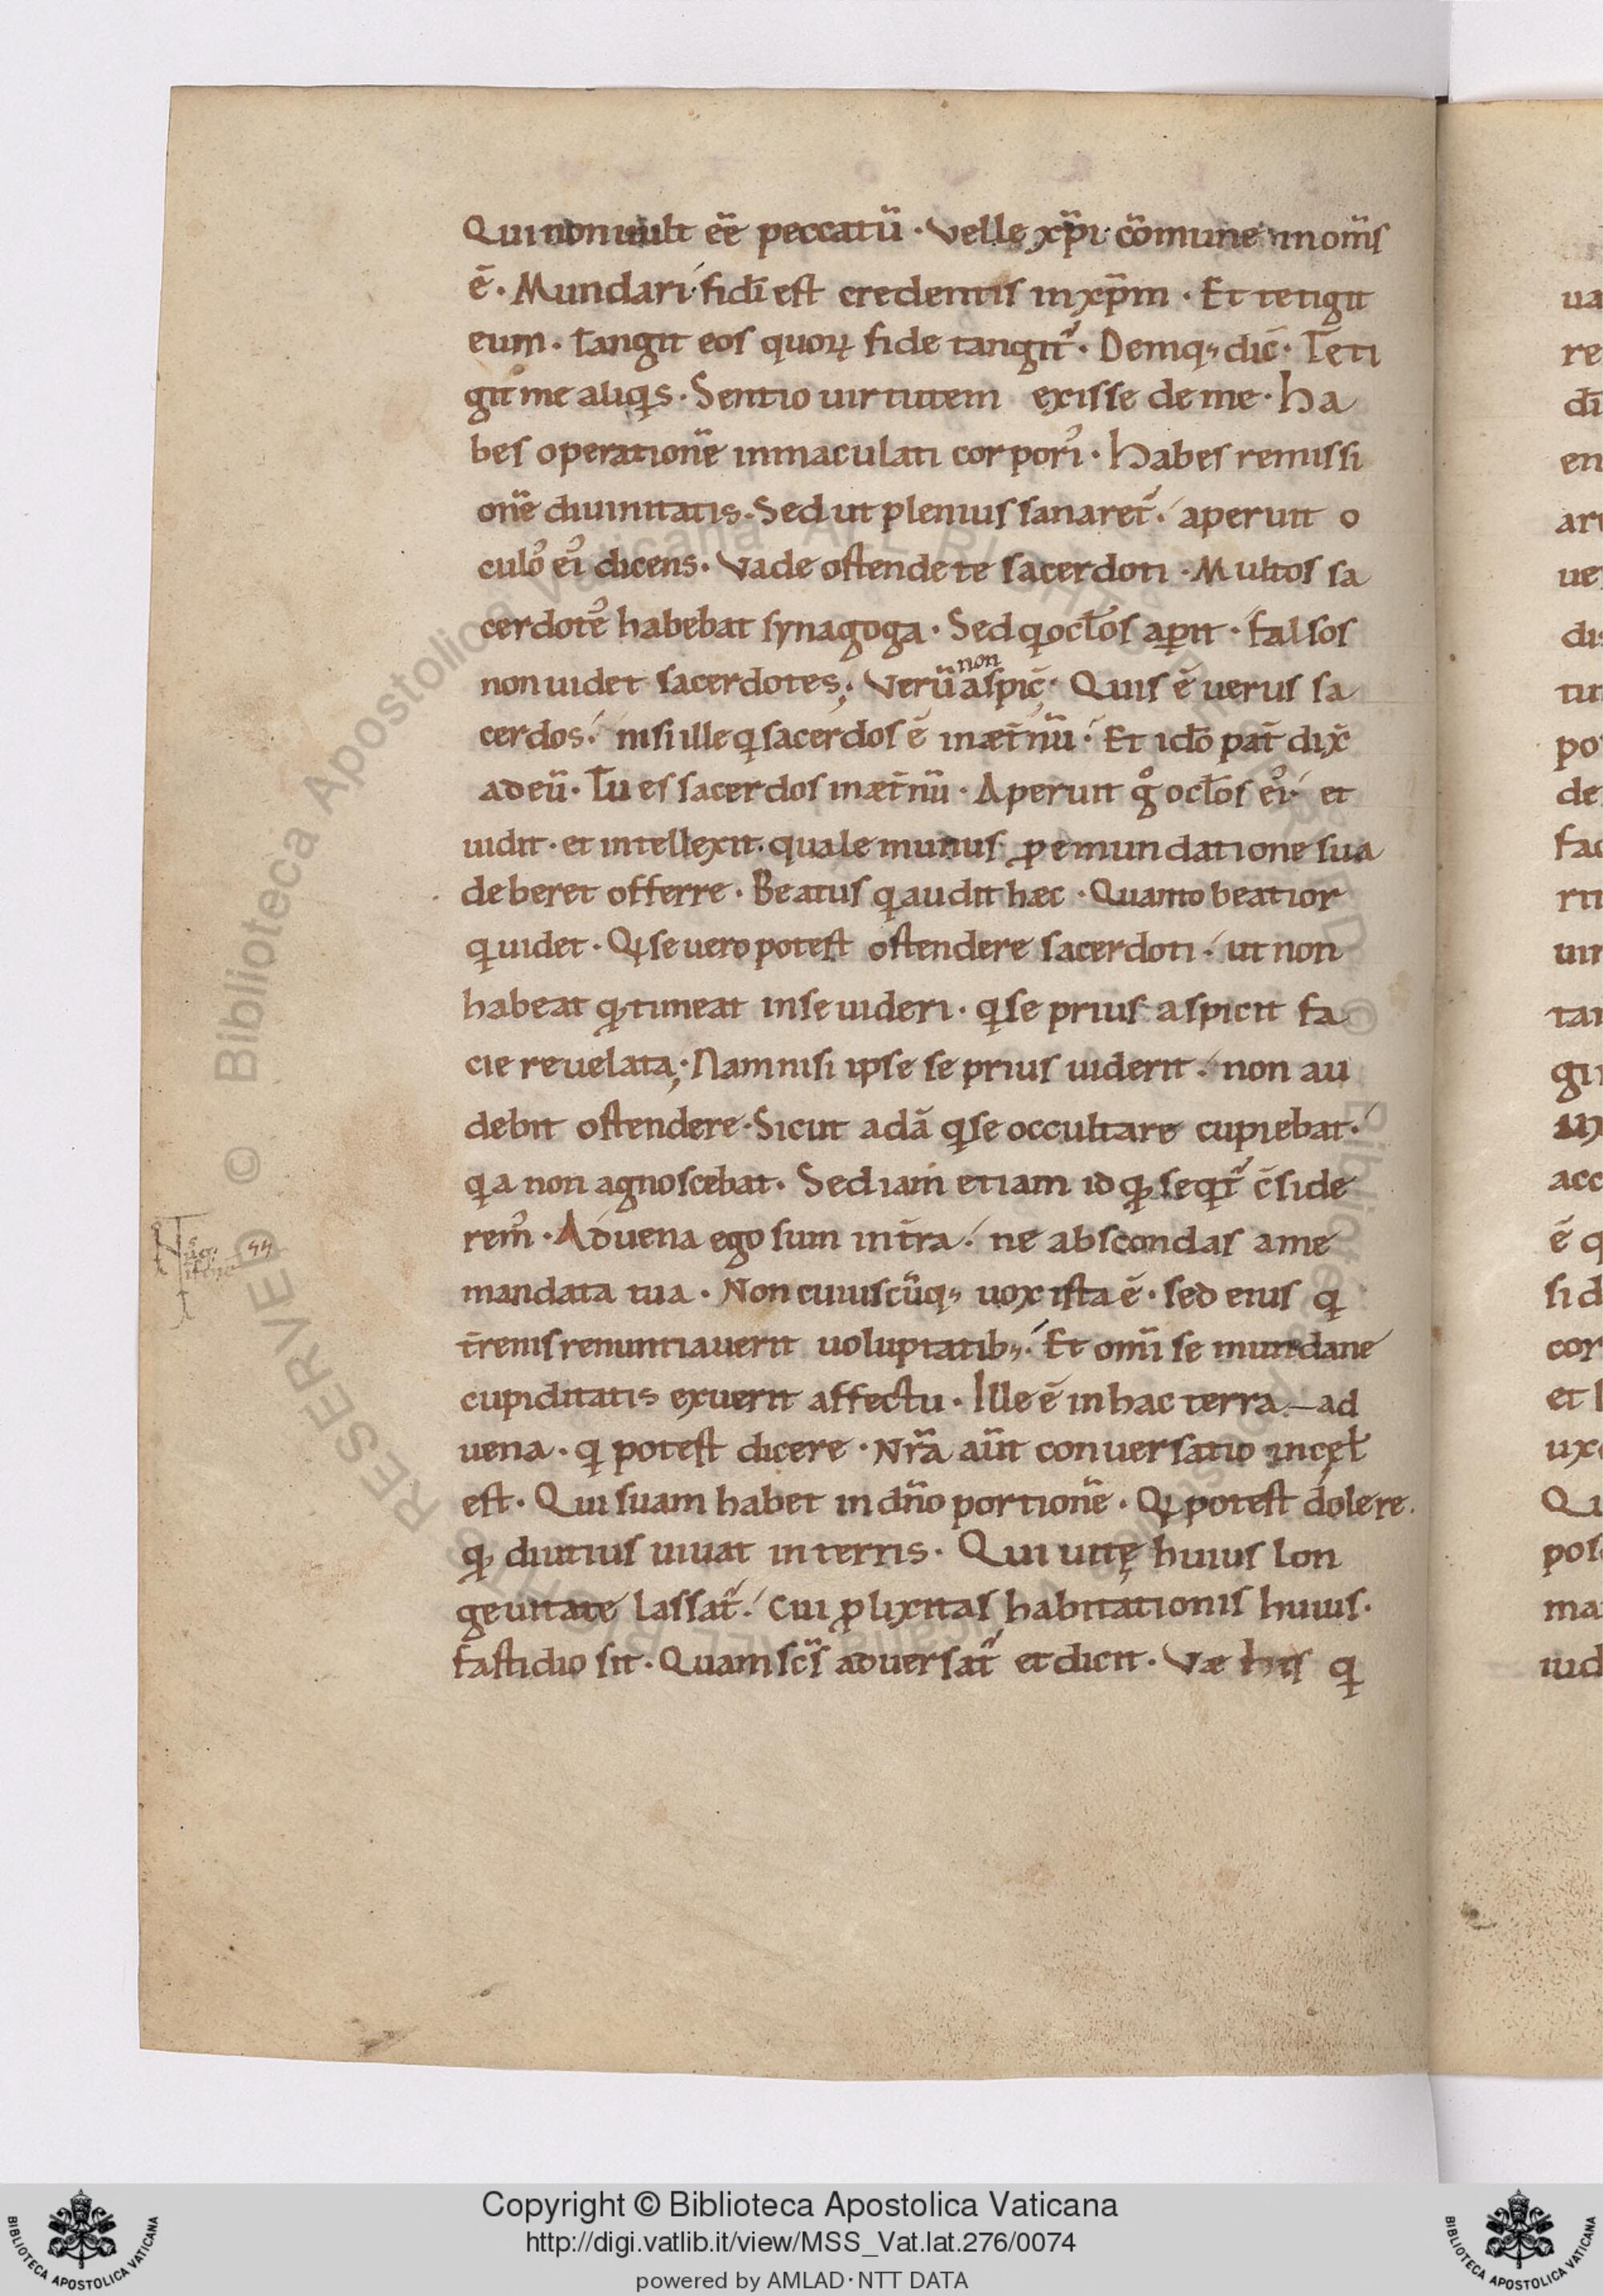 Qui non uult eē peccatū · Velle xp̄i cōmune in om̄s
ē · Mundari fidī est credentis in xp̄m · Et tetigit
eum · Tangit eos quoꝝ fide tangit᷑ · Deniq; dic̄ · Teti
git me aliq̊s · Sentio uirtutem exisse de me · ha
bes operationē inmaculati corpori᾿ · habes remissi
onē diuinitatis · Sed ut plenius sanaret᷑ ·́ aperuit o
culo᾿ ei᾿ dicens · Vade ostende te sacerdoti · Multos sa
cerdote᾿ habebat synagoga · Sed q̣ ocl̄os aꝑit · falsos
non uidet sacerdotes; Verū non aspic̄; Quis ē uerus sa
cerdos ·́ nisi ille q̣ sacerdos ē in æt̄nū ·́ Et idō pat̄ dix̄
ad eū · Tu es sacerdos in æt̄nū · Aperuit g̊ ocl̄os ei᾿ ·́ et
uidit · et intellexit · quale munus ꝓ emundatione sua
deberet offerre · Beatus q̣ audit hæc · Quanto beatior
q̣ uidet · Q̣ se uero potest ostendere sacerdoti ·́ ut non
habeat qđ timeat in se uideri · q̣ se prius aspicit fa
cie reuelata; Nam nisi ipse se prius uiderit ·́ non au
debit ostendere · Sicut adā q̣ se occultare cupiebat ·́
q̣a non agnoscebat · Sed iam etiam id qđ seq̣t᷑ c̄side
rem᾿ · Aduena ego sum in t̄ra ·́ ne abscondas a me
mandata tua · Non cuiuscūq; uox ista ē · sed eius q̣
t̄renis renuntiauerit uoluptatib; ·́ Et omī se mundane
cupiditatis exuerit affectu · Ille ē in hac terra ad
uena · q̣ potest dicere · Nr̄a aūt conuersatio in cęl̄
est · Qui suam habet in dn̄o portionē · Q̣ potest dolere ·
qđ diutius uiuat in terris · Qui uitę huius lon
geuitate lassat᷑ ·́ Cui ꝓlixitas habitationis huius ·
fastidio sit · Quam sc̄s aduersat᷑ et dicit · Væ his q̣
Copyright © Biblioteca Apostolica Vaticana
http://digi.vatlib.it/view/MSS_Vat.lat.276/0074
powered by AMLAD·NTT DATA